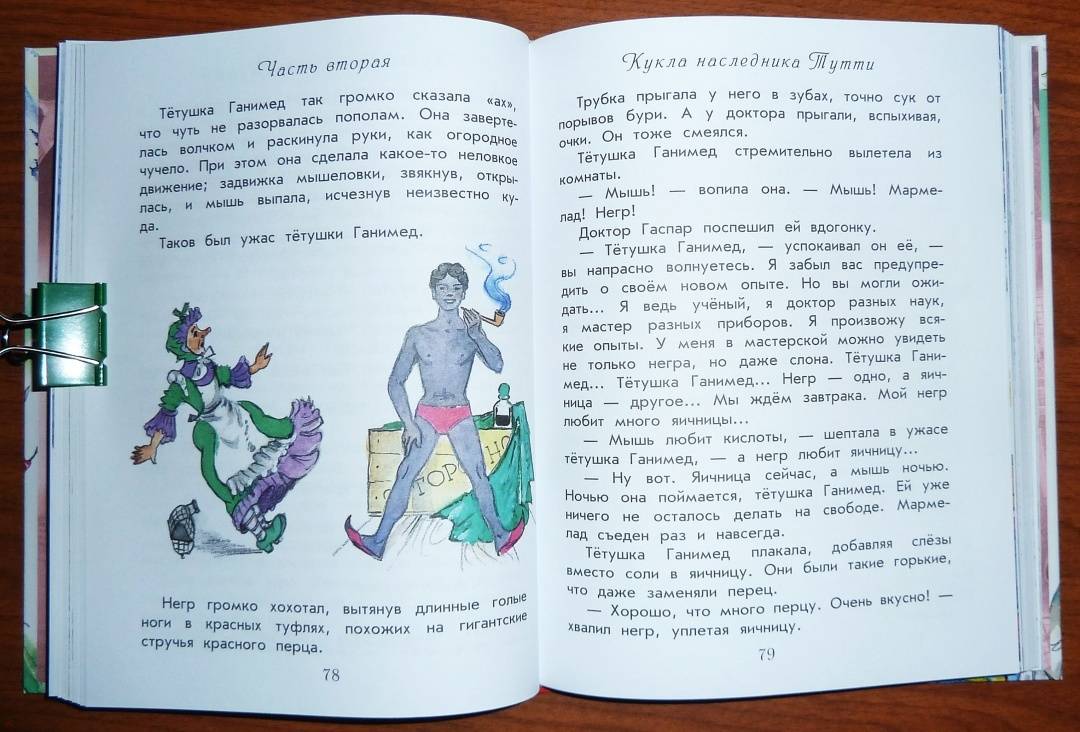 Часть вторая
Тётушка Ганимед так громко сказала «ах»,
что чуть не разорвалась пополам. Она заверте-
лась волчком и раскинула руки, как огородное
чучело. При этом она сделала какое-то неловкое
движение; задвижка мышеловки, звякнув, откры-
лась, и мышь выпала, исчезнув неизвестно ку-
да.
Таков был ужас тётушки Ганимед.
Негр громко хохотал, вытянув длинные голые
ноги в красных туфлях, похожих на гигантские
стручья красного перца.
78
Кукла наследника Тутти
Трубка прыгала у него в зубах, точно сук от
порывов бури. А у доктора прыгали, вспыхивая,
очки. Он тоже смеялся.
Тётушка Ганимед стремительно вылетела из
комнаты.
— Мышь! — вопила она. — Мышь! Марме-
лад! Негр!
Доктор Гаспар поспешил ей вдогонку.
— Тётушка Ганимед, — успокаивал он её, —
вы напрасно волнуетесь. Я забыл вас предупре-
дить о своём новом опыте. Но вы могли ожи-
дать... Я ведь учёный, я доктор разных наук,
я мастер разных приборов. Я произвожу вся-
кие опыты. У меня в мастерской можно увидеть
не только негра, но даже слона. Тётушка Гани-
мед... Тётушка Ганимед... Негр — одно, а яич-
ница — другое... Мы ждём завтрака. Мой негр
любит много яичницы...
— Мышь любит кислоты, — шептала в ужасе
тётушка Ганимед, — а негр любит яичницу...
— Ну вот. Яичница сейчас, а мышь ночью.
Ночью она поймается, тётушка Ганимед. Ей уже
ничего не осталось делать на свободе. Марме-
лад съеден раз и навсегда.
Тётушка Ганимед плакала, добавляя слёзы
вместо соли в яичницу. Они были такие горькие,
что даже заменяли перец.
— Хорошо, что много перцу. Очень вкусно! —
хвалил негр, уплетая яичницу.
79